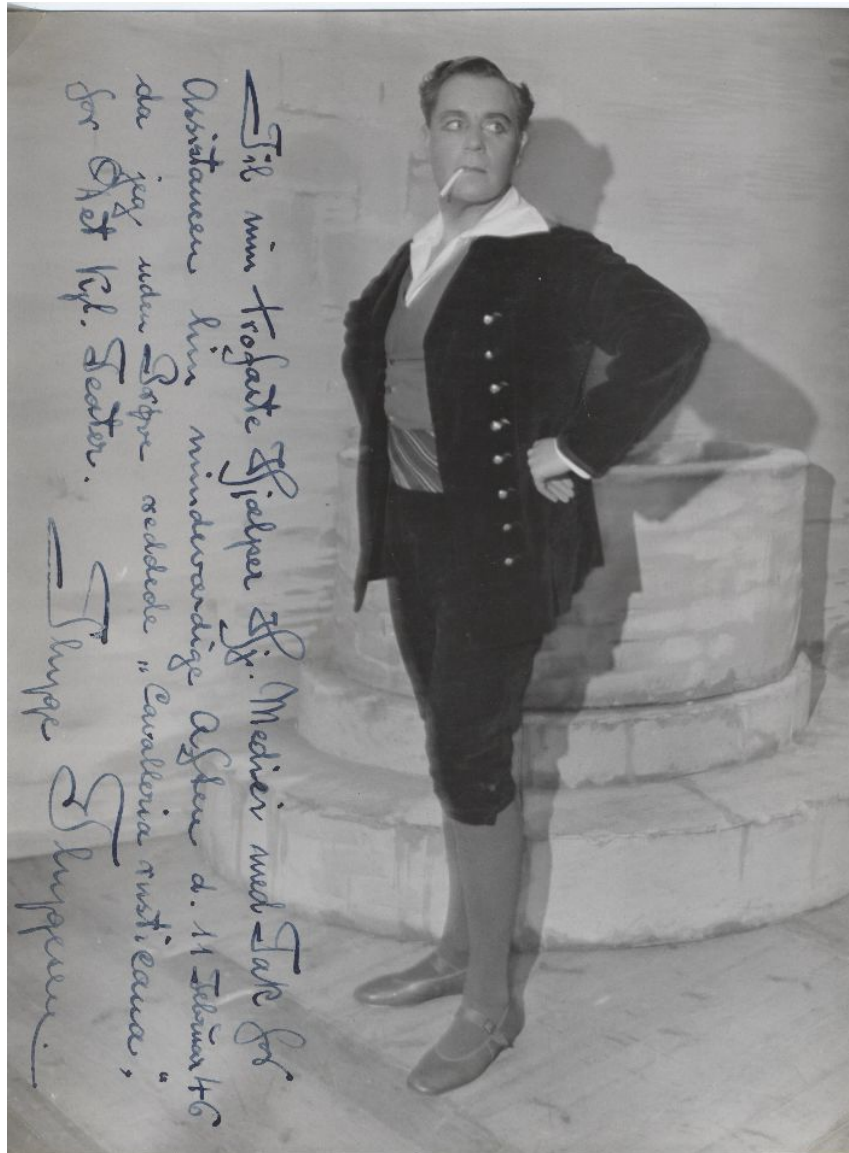 Til min trofaste Hjælper Hj. Medici med Tak for
Assistancen hin mindeværdige Aften d. 11 Februar 46
da jeg uden Prøve reddede „Cavalleria rusticana",
for Det Kgl. Teater.
Thyge Thygesen.